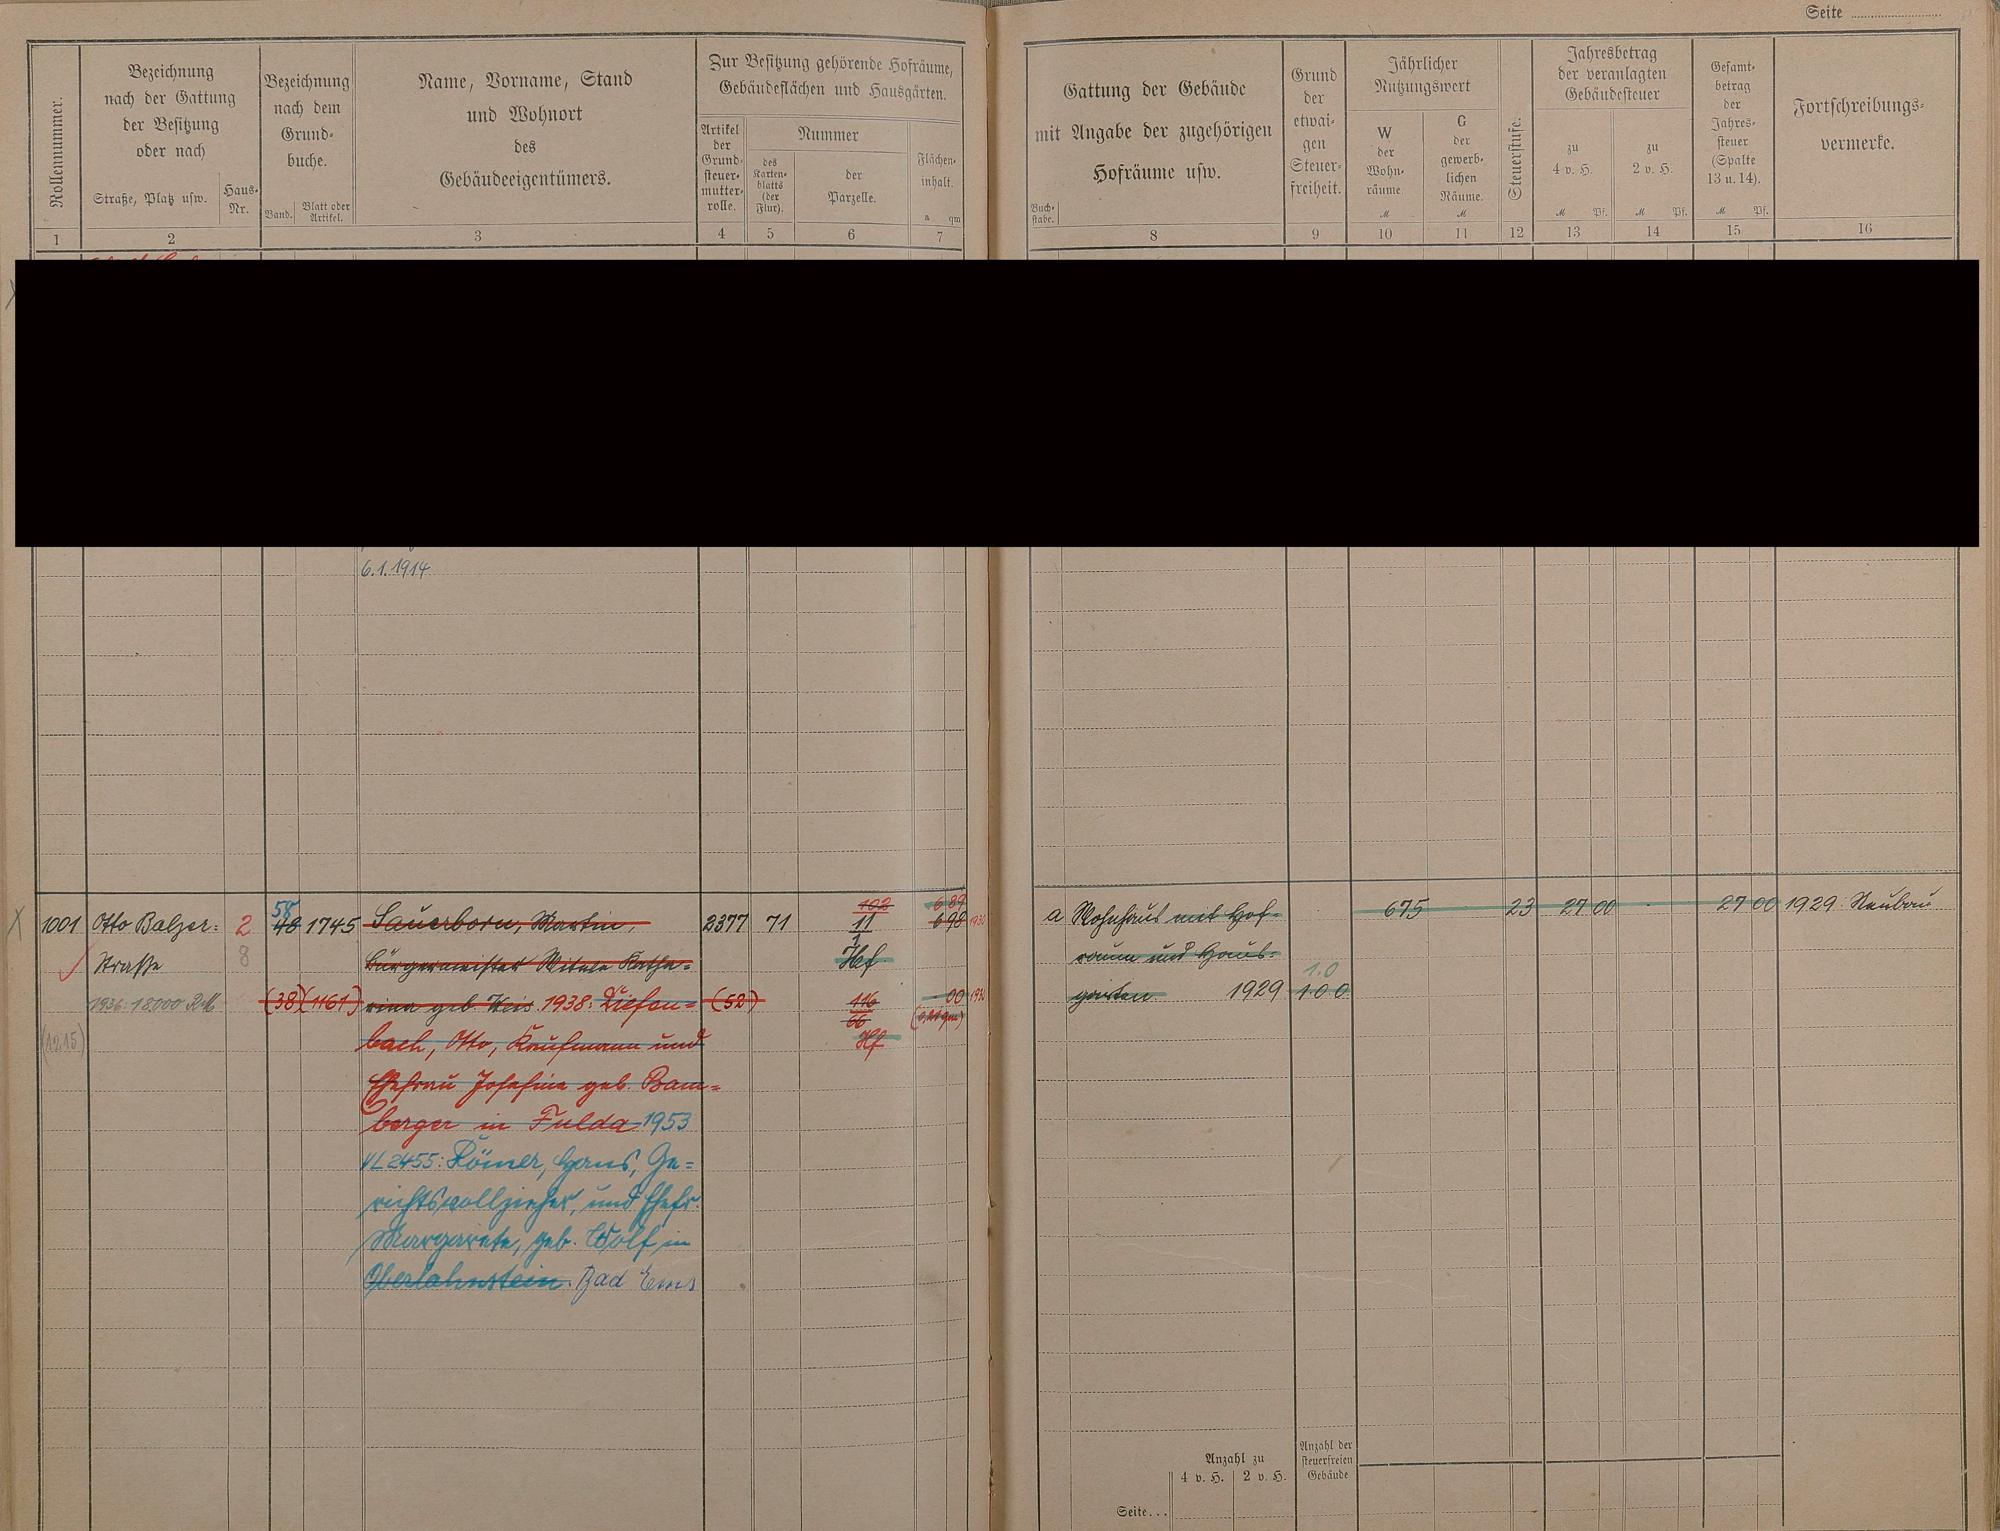 Seite
Rollennummer.
Bezeichnung
nach der Gattung
der Besitzung
oder nach
Straße, Platz usw.
Haus-
Nr.
Bezeichnung
nach dem
Grund-
buche.
Band.
Blatt oder
Artikel.
Name, Vorname, Stand
und Wohnort
des
Gebäudeeigentümers.
Zur Besitzung gehörende Hofräume,
Gebäudeflächen und Hausgärten.
Artikel
der
Grund-
steuer-
mutter-
rolle.
Nummer
des
Karten-
blatts
(der
Flur).
der
Parzelle.
Flächen-
inhalt.
a qm
Gattung der Gebäude
mit Angabe der zugehörigen
Hofräume usw.
Buch-
stabe.
Grund
der
etwai-
gen
Steuer-
freiheit.
Jährlicher
Nutzungswert
W
der
Wohn-
räume.
M
G
der
gewerb-
lichen
Räume.
M
Steuerstufe.
Jahresbetrag
der veranlagten
Gebäudesteuer
zu
4 v. H.
M Pf.
zu
2 v. H.
M Pf.
Gesamt-
betrag
der
Jahres-
steuer
(Spalte
13 u. 14).
M Pf.
Fortschreibungs-
vermerke.
1 2 3 4 5 6 7 8 9 10 11 12 13 14 15 16
6.1.1914
1001 Otto Balzer-
Straße
2
8
1936: 18000 RM
(1215)
58
48 1745
(38) (1161)
Sauerborn, Martin,
Bürgermeister Witwe Katha-
rina geb. Weis. 1938: Diefen-
bach, Otto, Kaufmann und
Ehefrau Josefine geb. Bam-
berger in Fulda 1953
VL 2455: Römer, Hans, Ge-
richtsvollzieher, und Ehefr.
Margarete, geb. Wolf in
Oberlahnstein. Bad Ems
2377 71
(52)
102
11
1
Hf
6 89
6 90 1930
116
66
Hf
00 1930
a Wohnhaus mit Hof-
raum und Haus-
garten. 1929
1.0
1.0 0
675 23 27 00 27 00 1929: Neubau
Anzahl zu
4 v. H. 2 v. H.
Anzahl der
steuerfreien
Gebäude
Seite...